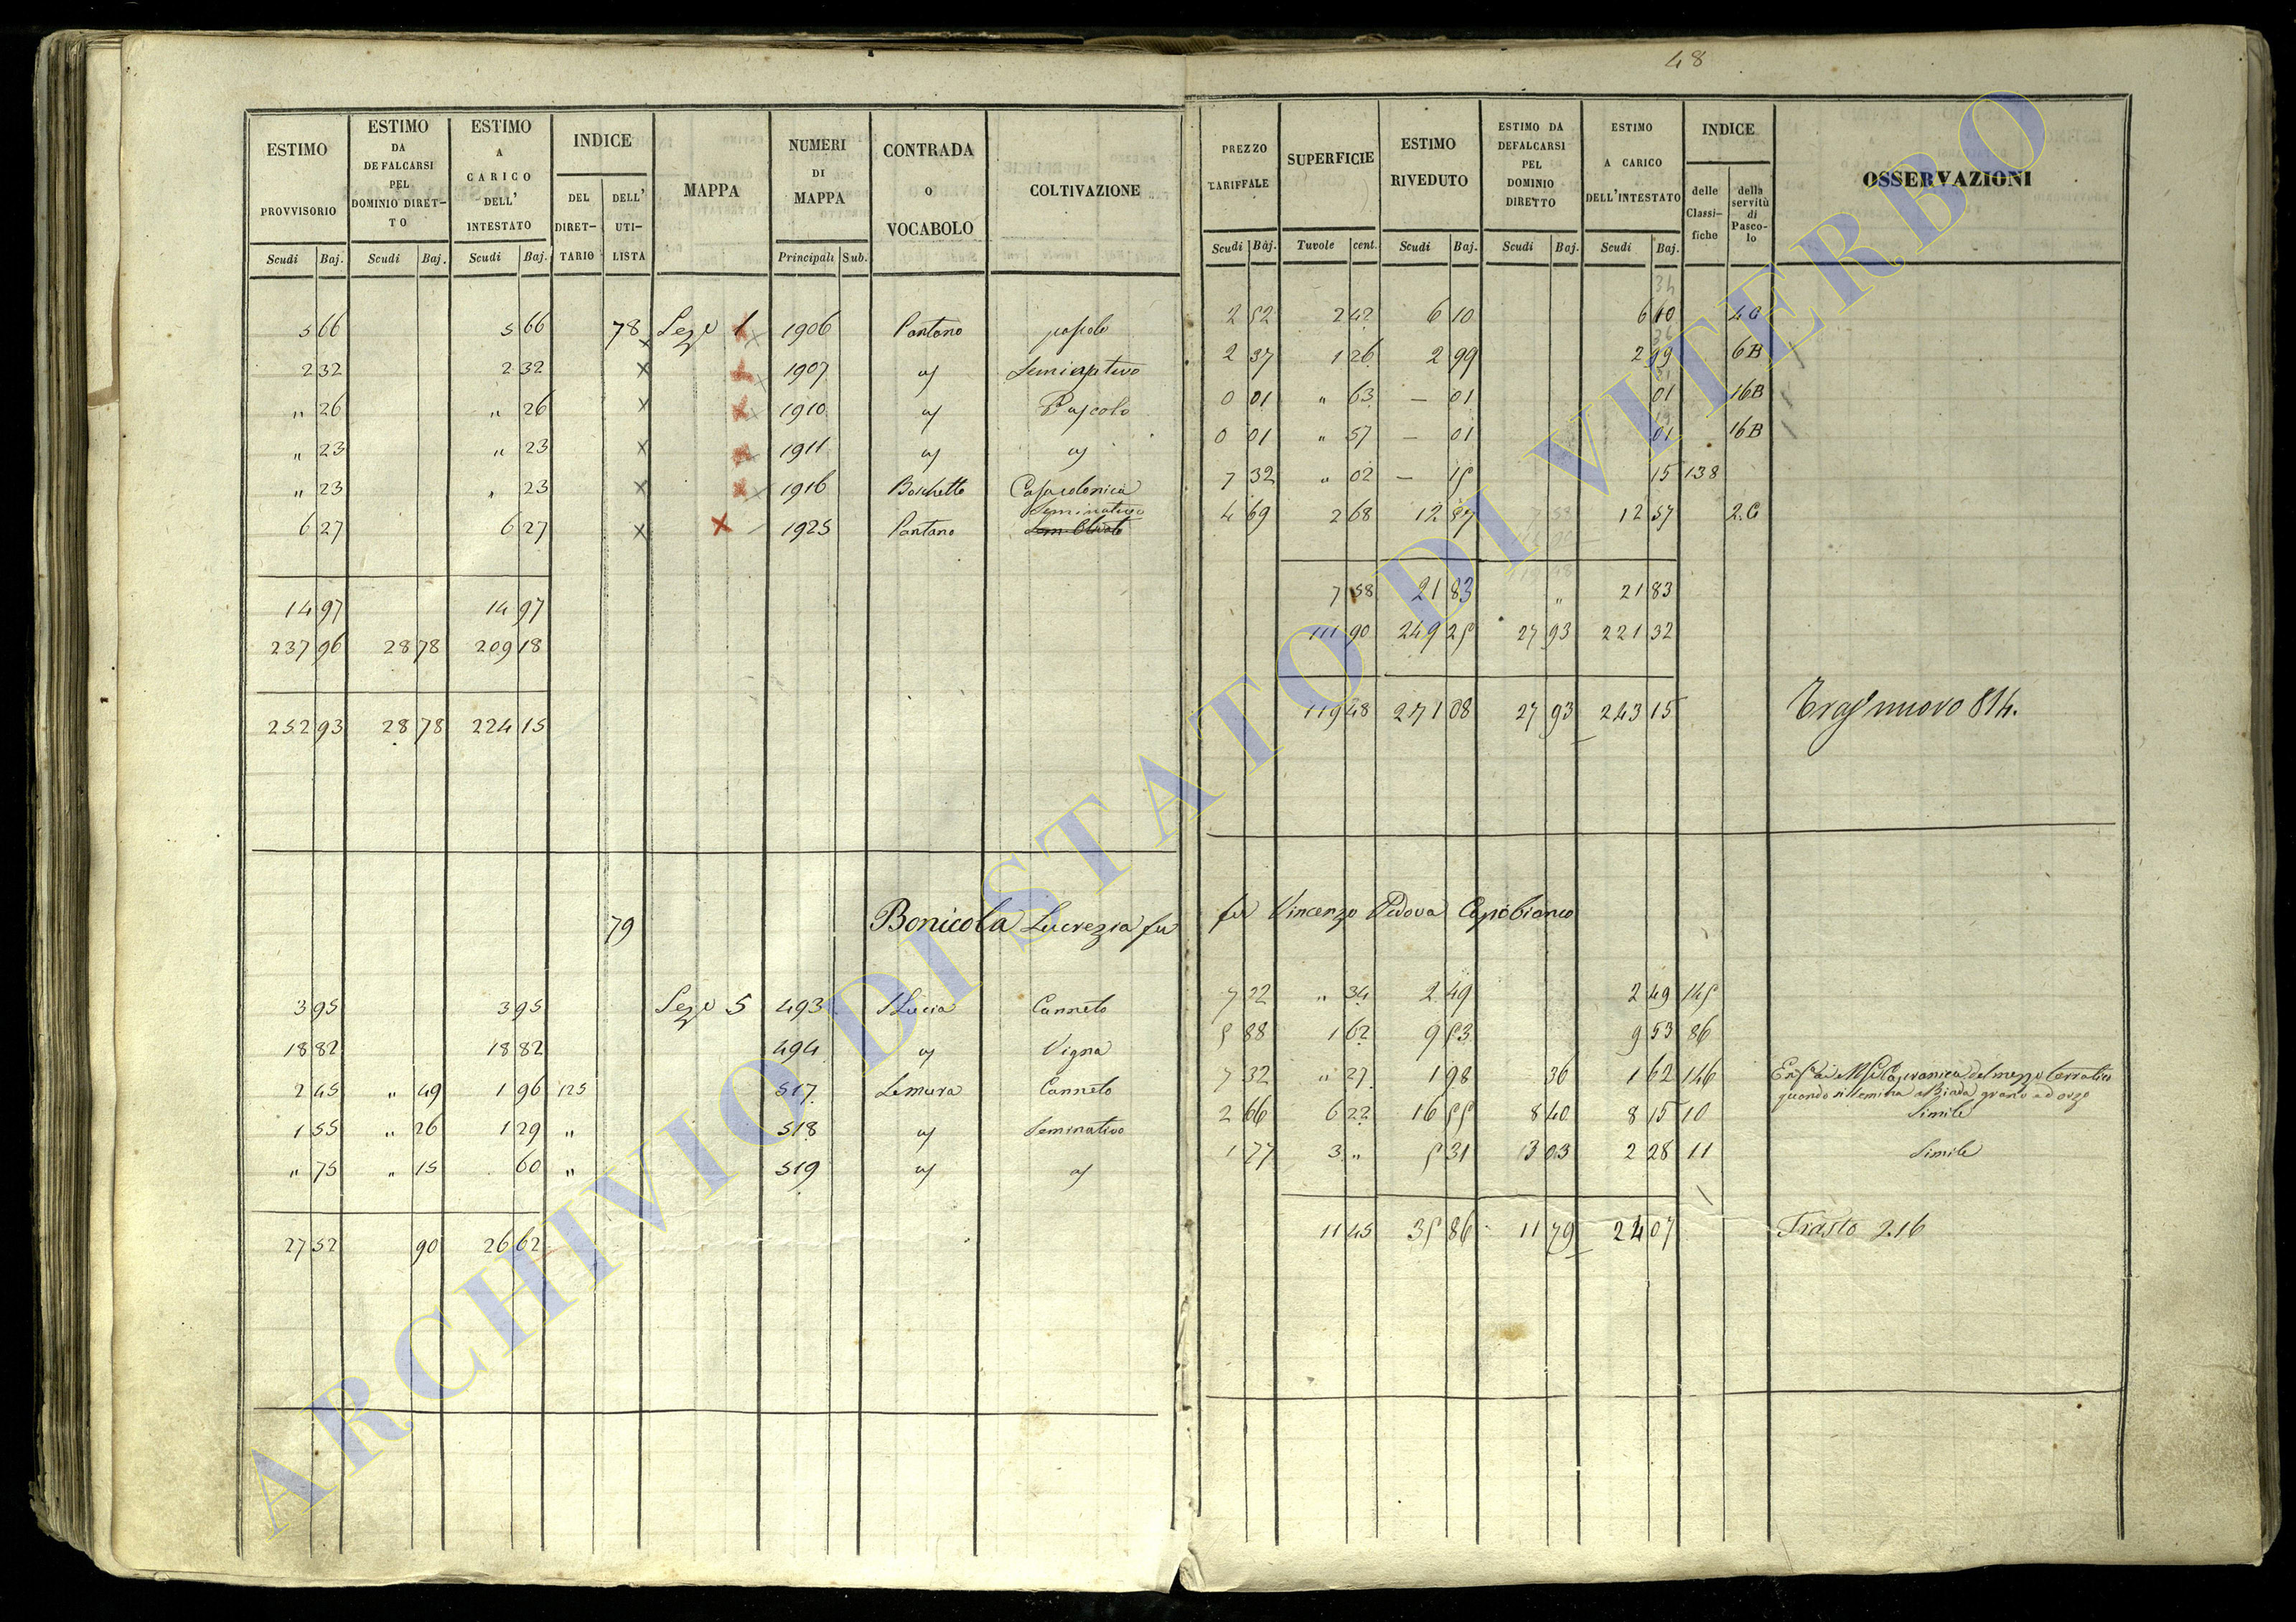 48
ESTIMO PROVVISORIO
ESTIMO DA DEFALCARSI PEL DOMINIO DIRET-TO
ESTIMO A CARICO DELL' INTESTATO
INDICE
DEL DIRET-TARIO
DELL' UTI-LISTA
MAPPA
NUMERI DI MAPPA
CONTRADA O VOCABOLO
COLTIVAZIONE
Scudi Baj. Scudi Baj. Scudi Baj. Principali Sub.
5 66 5 66 78 Sez. 1 1906 Pantano pascolo
2 32 2 32 x 1907 Seminativo
" 26 " 26 x 1910 Pascolo
" 23 " 23 x 1911
" 23 " 23 x 1916 Boschetto Casa colonica
6 27 6 27 x x 1925 Pantano Seminativo
14 97 14 97
237 96 28 78 209 18
252 93 28 78 224 15
79 Bonicola Lucrezia fu
3 95 3 95 Sez. 5 493 S Lucia Canneto
18 82 18 82 494 Vigna
2 45 " 49 1 96 125 517 Lemura Canneto
1 55 " 26 1 29 " 518 Seminativo
" 75 " 15 60 " 519
27 52 90 26 62
PREZZO TARIFFALE
SUPERFICIE
ESTIMO RIVEDUTO
ESTIMO DA DEFALCARSI PEL DOMINIO DIRETTO
ESTIMO A CARICO DELL'INTESTATO
INDICE
delle Classi-fiche
della servitù di Pasco-lo
OSSERVAZIONI
Scudi Baj. Tavole cent. Scudi Baj. Scudi Baj. Scudi Baj.
2 52 2 42 6 10 6 10 4 C
2 37 1 26 2 99 2 99 6 B
0 01 " 63 — 01 01 16 B
0 01 " 57 — 01 01 16 B
7 32 " 02 — 15 15 138
4 69 2 68 12 57 12 57 2 C
7 58 21 83 " 21 83
111 90 249 25 27 93 221 32
119 48 271 08 27 93 243 15 Tras nuovo 814.
fu Vincenzo Vedova Capobianco
7 32 " 34 2 49 2 49 145
5 88 1 62 9 53 9 53 86
7 32 " 27 1 98 36 1 62 146
quando si semina a Biada grano ad orzo
2 66 6 22 16 55 8 40 8 15 10 Simile
1 77 3 " 5 31 3 03 2 28 11 Simile
11 45 35 86 11 79 24 07 Trasto 216
ARCHIVIO DI STATO DI VITERBO